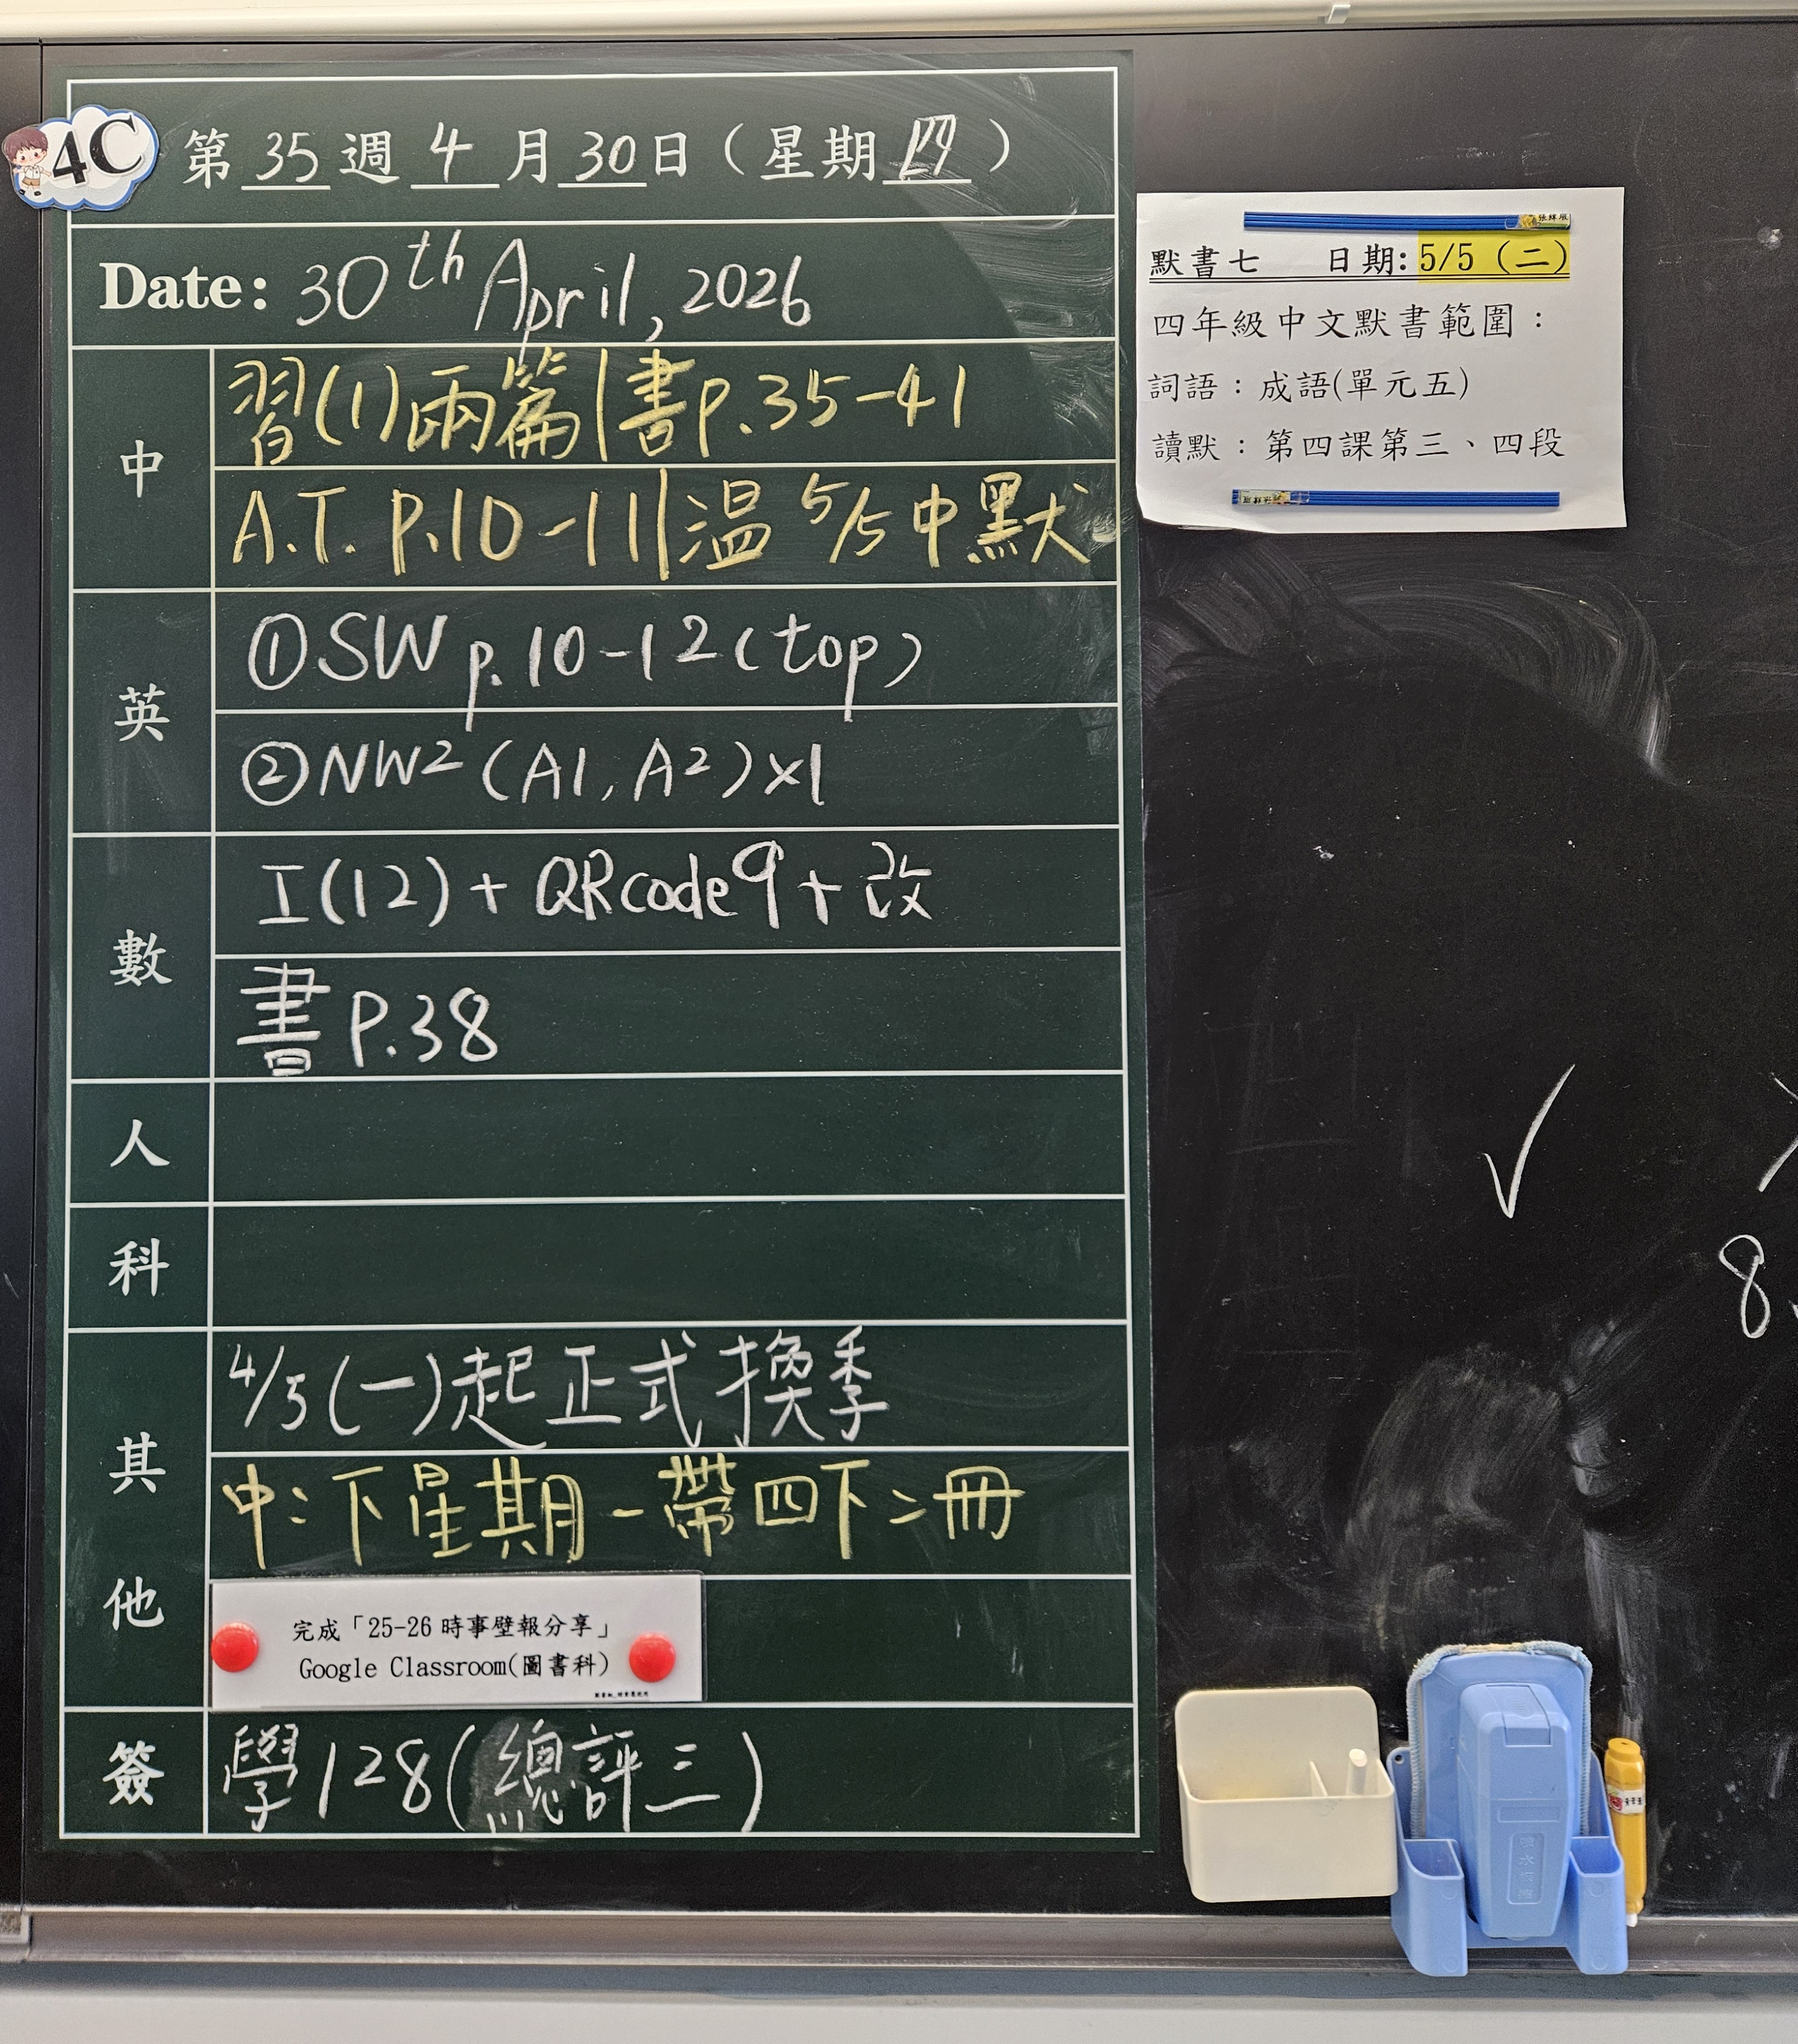 4C
第 35 週 4 月 30 日（星期 四 ）
Date: 30th April, 2026
中
習(1)兩篇|書P.35-41
A.T. P.10-11|溫 5/5 中默
英
①SW p.10-12(top)
②NW2 (A1, A2)x1
數
I(12) + QRcode9 + 改
書 P.38
人
科
其他
4/5(一)起正式換季
中:下星期一帶四下二冊
完成「25-26 時事壁報分享」
Google Classroom(圖書科)
簽
學128(總評三)
默書七 日期:5/5（二）
四年級中文默書範圍：
詞語：成語(單元五)
讀默：第四課第三、四段
8